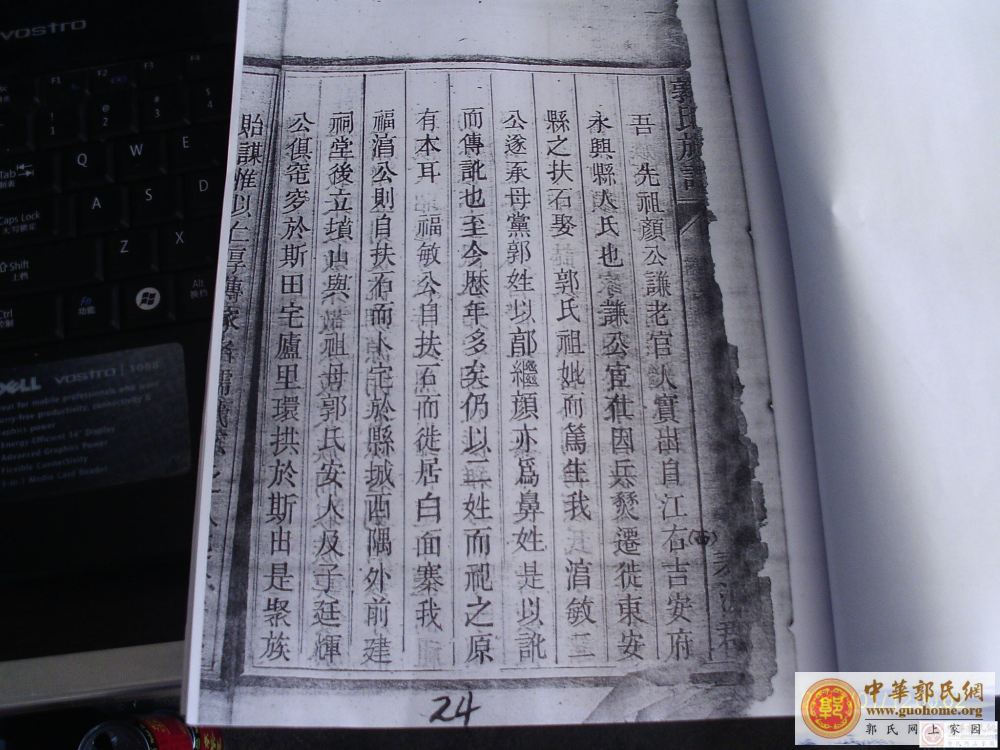 郭氏族譜
吾 先祖顏公謙老官人實出自江右吉安府
永興縣人氏也 謙公宦仕因兵燹遷徙東安
縣之扶石娶 郭氏祖妣而篤生我 湻敏二
公遂承母黨郭姓以郭繼顏亦爲鼻姓是以訛
而傳訛也至今歷年多矣仍以二姓而祀之原
有本耳 福敏公自扶石而徙居白面寨我
福湻公則自扶石而卜宅於縣城西隅外前建
祠堂後立墳山與 祖母郭氏安人及子廷輝
公俱窀穸於斯田宅廬里環拱於斯出是聚族
貽謀惟以仁厚傳家
24
vostro
F1
F2
F3
F4
Q
W
E
R
A
S
D
Z
X
Tab
Caps Lock
大写锁定
Shift
上档
Ctrl
控制
Fn
功能
Alt
换档
DELL vostro | 1088
Energy-Efficient 14" Display
Advanced Graphics Power
Flexible Connectivity
中華郭氏網
www.guohome.org
郭氏网上家园